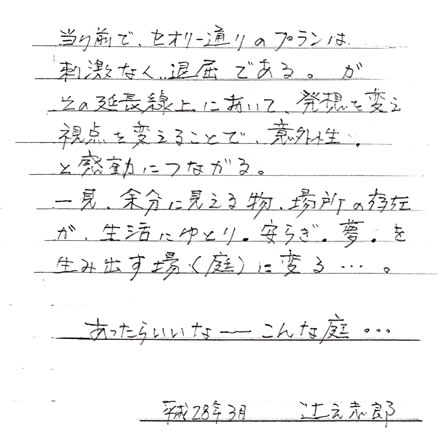 当り前で、セオリー通りのプランは
刺激なく、退屈である。が
その延長線上において、発想を変え
視点を変えることで、意外性・
と感動につながる。
一見、余分に見える物、場所の存在
が、生活にゆとり・安らぎ・夢・を
生み出す場（庭）に変る…。
あったらいいな――こんな庭…
平成28年3月 辻 郎